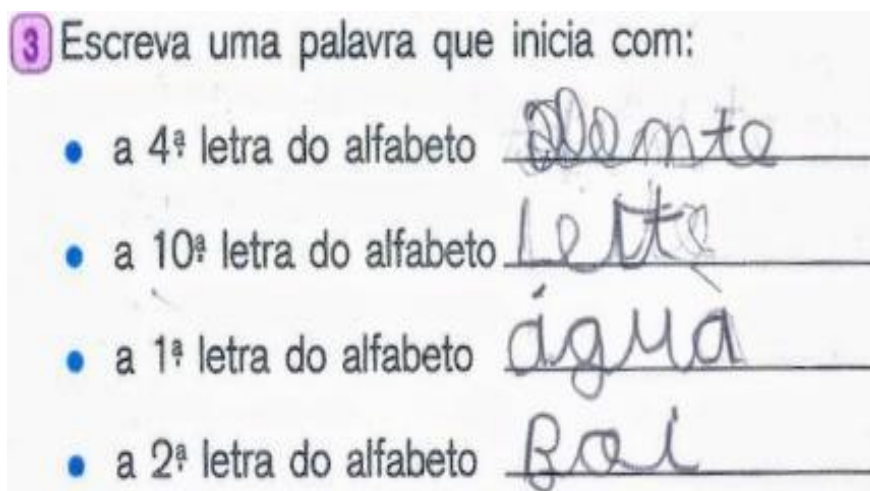 3 Escreva uma palavra que inicia com:
• a 4ª letra do alfabeto
• a 10ª letra do alfabeto Leite
• a 1ª letra do alfabeto água
• a 2ª letra do alfabeto Boi